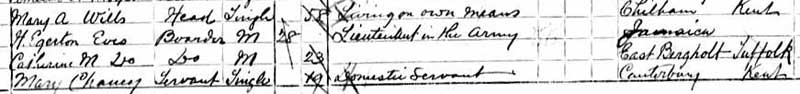 Mary A Wills Head Single 58 Living on own means Chilham Kent
H. Egerton Eves Boarder M 28 Lieutenant in the Army Jamaica
Catherine M Do Do M 23 East Bergholt Suffolk
Mary Chaney Servant Single 19 Domestic Servant Canterbury Kent